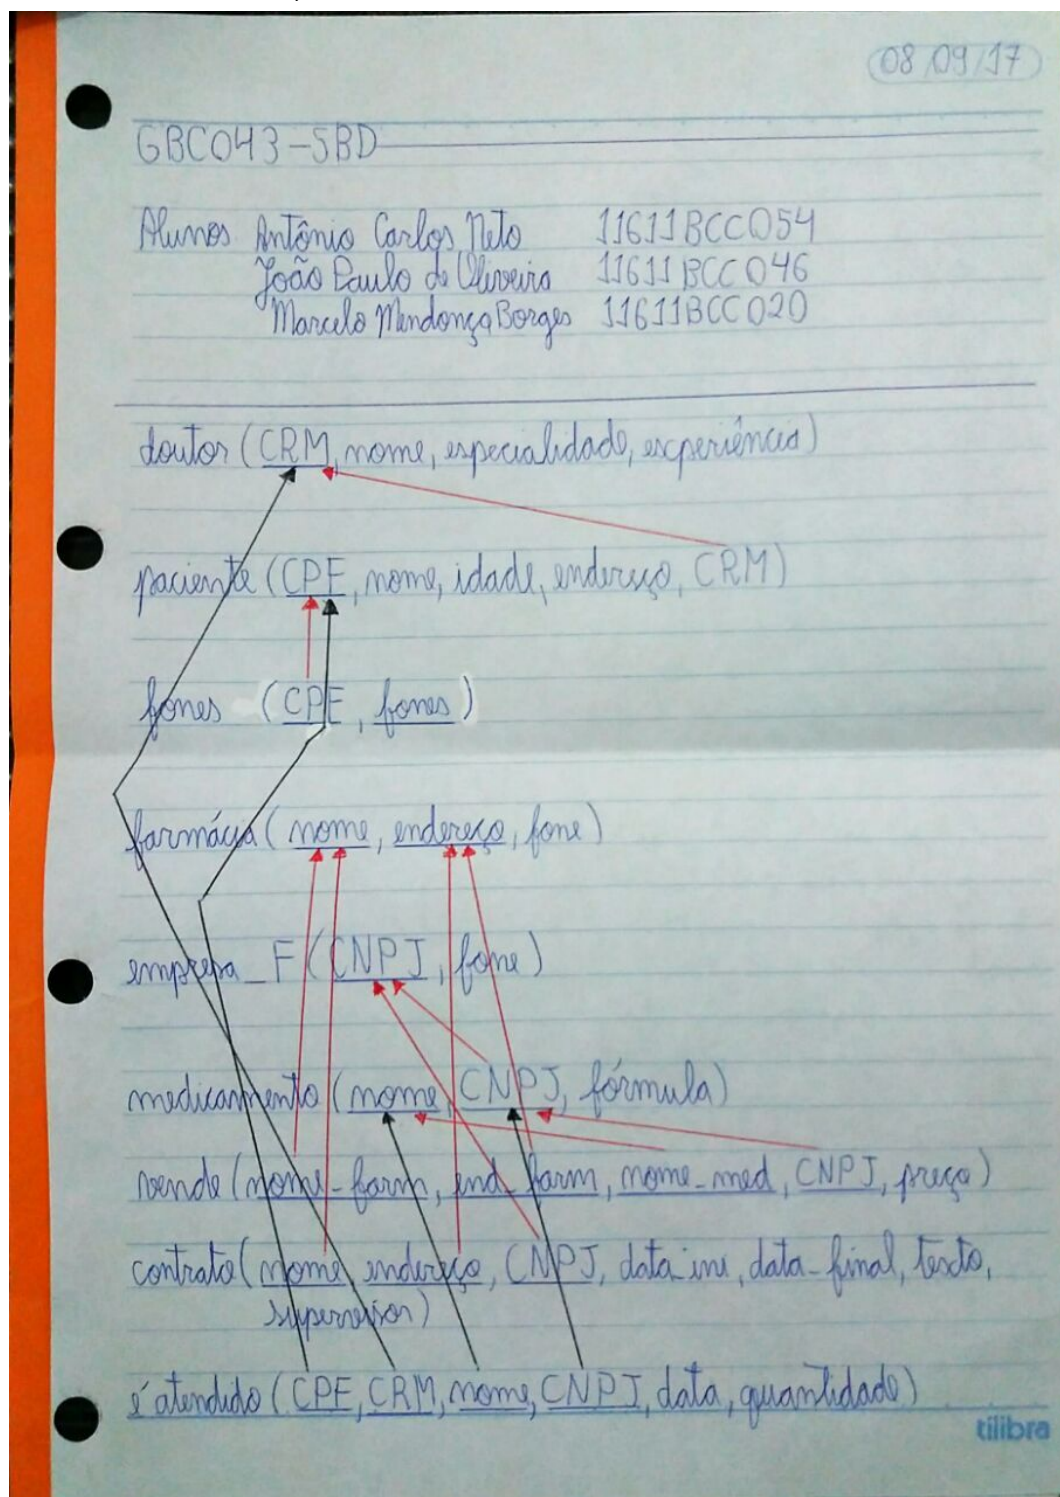 08/09/17
GBC043-SBD
Alunos Antônio Carlos Neto 11611BCC054
João Paulo de Oliveira 11611BCC046
Marcelo Mendonça Borges 11611BCC020
doutor (CRM, nome, especialidade, experiência)
paciente (CPF, nome, idade, endereço, CRM)
fones (CPF, fones)
farmácia (nome, endereço, fone)
empresa_F (CNPJ, fone)
medicamento (nome, CNPJ, fórmula)
vende (nome-farm, end_farm, nome-med, CNPJ, preço)
contrato (nome, endereço, CNPJ, data_ini, data-final, texto,
supervisor)
é atendido (CPF, CRM, nome, CNPJ, data, quantidade)
tilibra